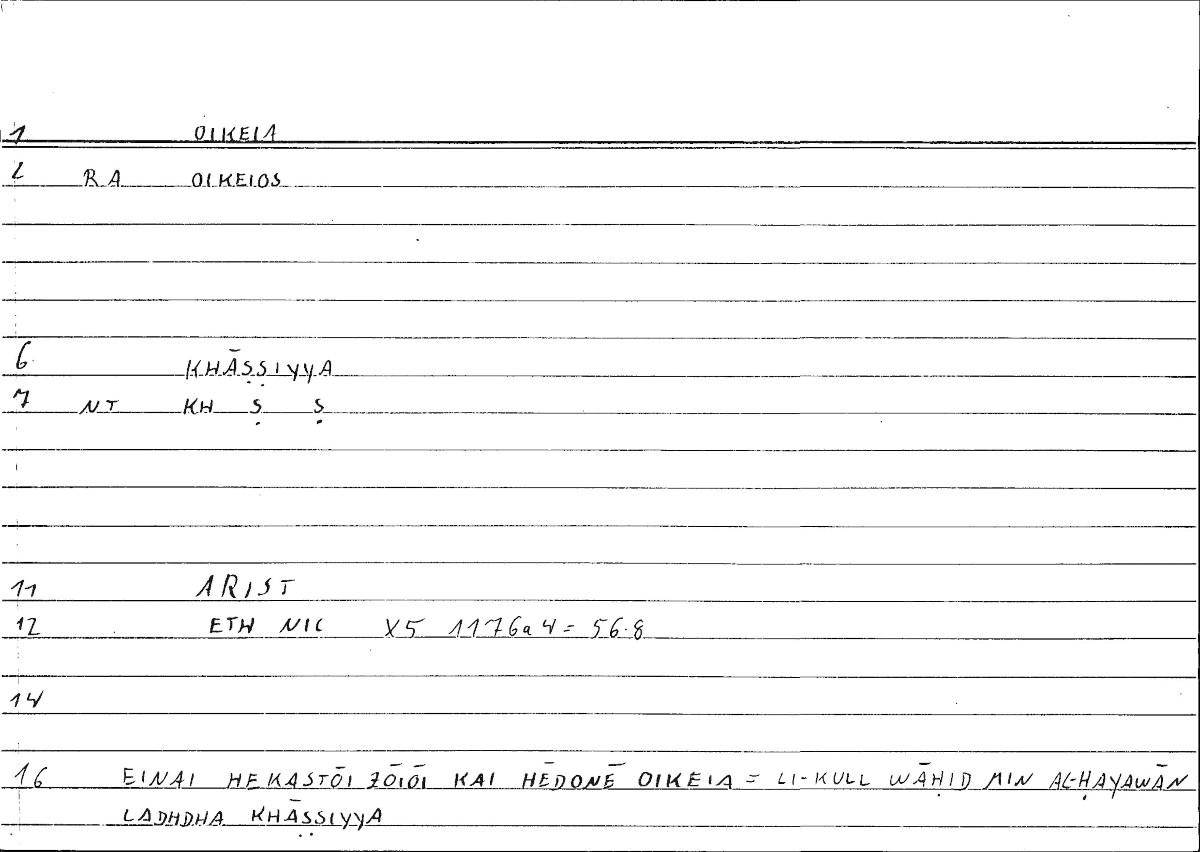 1 OIKEIA
2 RA OIKEIOS
6 KHĀṢṢIYYA
7 NT KH Ṣ Ṣ
11 ARIST
12 ETH NIC X5 1176a4 = 56.8
14
16 EINAI HEKASTŌI ZŌIŌI KAI HĒDONĒ OIKEIA = LI-KULL WĀḤID MIN AL-ḤAYAWĀN
LADHDHA KHĀṢṢIYYA